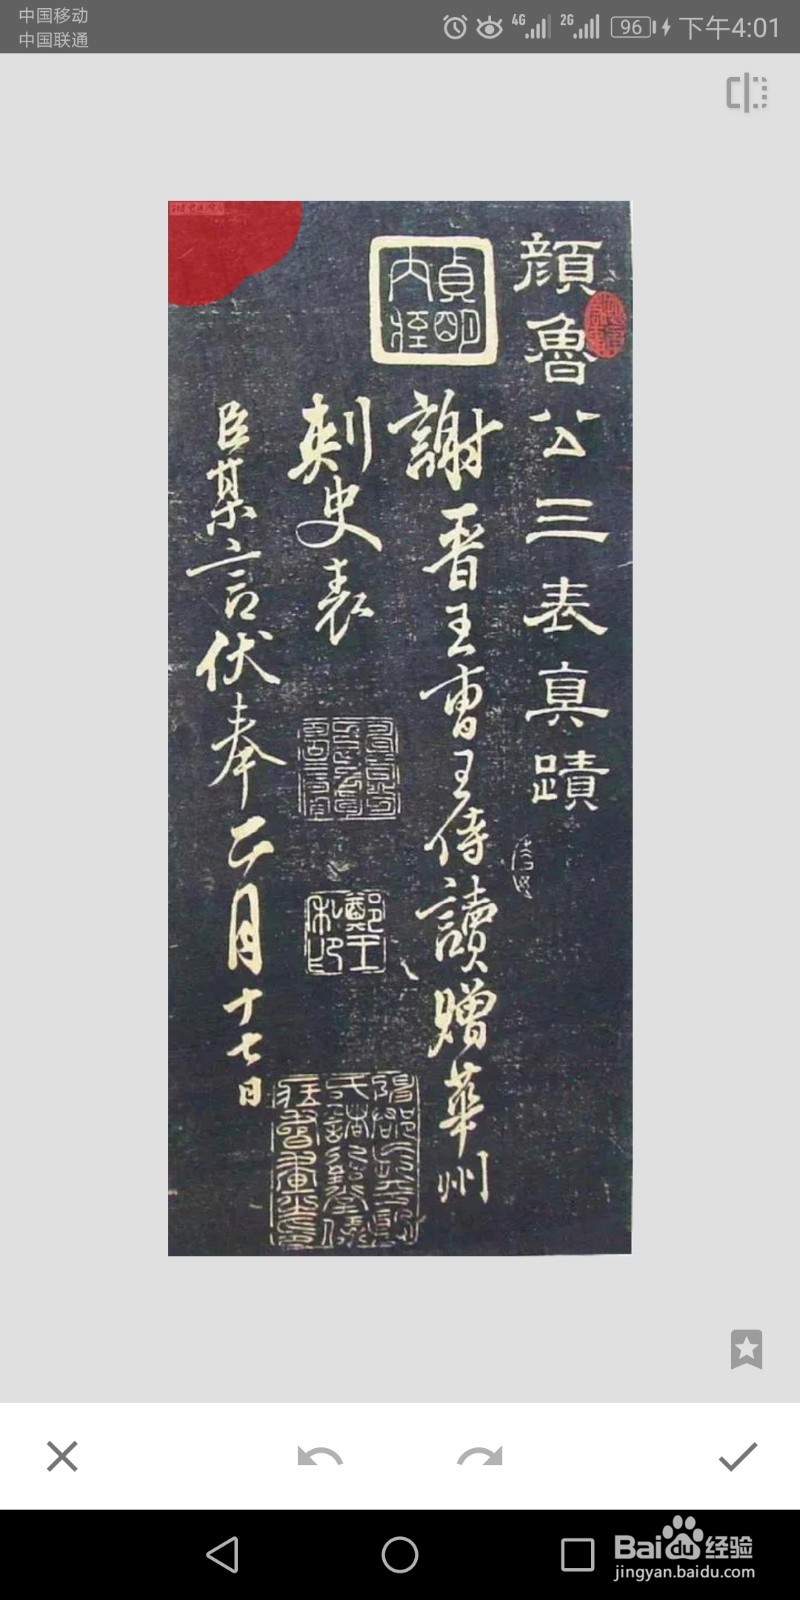 中国移动
中国联通
4G
2G
96
下午4:01
顔魯公三表真蹟
貞明
内㧪
謝晋王曹王侍讀贈華州
刺史表
鄭王
私印
臣某言伏奉二月十七日
Baidu经验
jingyan.baidu.com